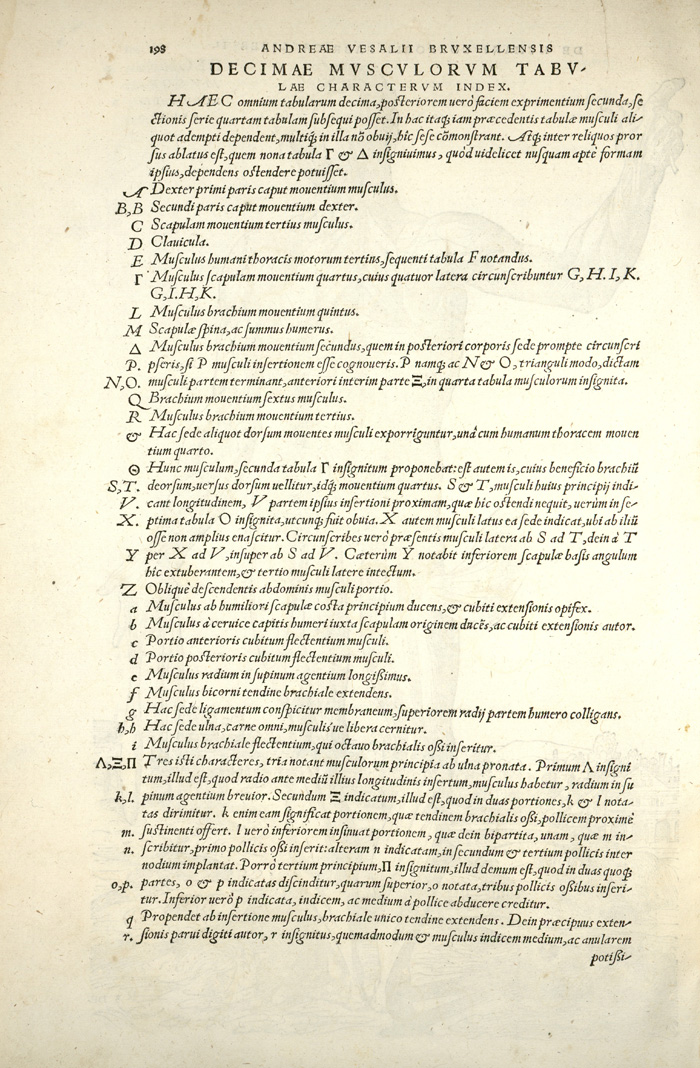 198 ANDREAE VESALII BRVXELLENSIS
DECIMAE MVSCVLORVM TABV-
LAE CHARACTERVM INDEX.
HAEC omnium tabularum decima, posteriorem uerò faciem exprimentium secunda, se
ctionis serie quartam tabulam subsequi posset. In hac itaq; iam præcedentis tabulæ musculi ali-
quot adempti dependent, multiq; in illa nō obuij, hic sese cōmonstrant. Atq; inter reliquos pror
sus ablatus est, quem nona tabula Γ & Δ insigniuimus, quòd uidelicet nusquam aptè formam
ipsius, dependens ostendere potuisset.
A Dexter primi paris caput mouentium musculus.
B, B Secundi paris caput mouentium dexter.
C Scapulam mouentium tertius musculus.
D Clauicula.
E Musculus humani thoracis motorum tertius, sequenti tabula F notandus.
Γ Musculus scapulam mouentium quartus, cuius quatuor latera circunscribuntur G, H. I, K.
G, I. H, K.
L Musculus brachium mouentium quintus.
M Scapulæ spina, ac summus humerus.
Δ Musculus brachium mouentium secundus, quem in posteriori corporis sede prompte circunscri
P. pseris, si P musculi insertionem esse cognoueris. P namq; ac N & O, trianguli modo, dictam
N, O. musculi partem terminant, anteriori interim parte Ξ, in quarta tabula musculorum insignita.
Q Brachium mouentium sextus musculus.
R Musculus brachium mouentium tertius.
& Hac sede aliquot dorsum mouentes musculi exporriguntur, unà cum humanum thoracem mouen
tium quarto.
Θ Hunc musculum, secunda tabula Γ insignitum proponebat: est autem is, cuius beneficio brachiū
S, T. deorsum, uersus dorsum uellitur, idq; mouentium quartus. S & T, musculi huius principij indi-
V. cant longitudinem, V partem ipsius insertioni proximam, quæ hic ostendi nequit, uerùm in se-
X. ptima tabula O insignita, utcunq; fuit obuia. X autem musculi latus ea sede indicat, ubi ab iliū
osse non amplius enascitur. Circunscribes uerò præsentis musculi latera ab S ad T, dein à T
Y per X ad V, insuper ab S ad V. Cæterùm Y notabit inferiorem scapulæ basis angulum
hic extuberantem, & tertio musculi latere intectum.
Z Obliquè descendentis abdominis musculi portio.
a Musculus ab humiliori scapulæ costa principium ducens, & cubiti extensionis opifex.
b Musculus à ceruice capitis humeri iuxta scapulam originem ducēs, ac cubiti extensionis autor.
c Portio anterioris cubitum flectentium musculi.
d Portio posterioris cubitum flectentium musculi.
e Musculus radium in supinum agentium longißimus.
f Musculus bicorni tendine brachiale extendens.
g Hac sede ligamentum conspicitur membraneum, superiorem radij partem humero colligans.
h, h Hac sede ulna, carne omni, musculisue libera cernitur.
i Musculus brachiale flectentium, qui octauo brachialis oßi inseritur.
Λ, Ξ, Π Tres isti characteres, tria notant musculorum principia ab ulna pronata. Primum Λ insigni
tum, illud est, quod radio ante mediū illius longitudinis insertum, musculus habetur, radium in su
k, l. pinum agentium breuior. Secundum Ξ indicatum, illud est, quod in duas portiones, k & l nota-
tas dirimitur. k enim eam significat portionem, quæ tendinem brachialis oßi, pollicem proximè
m. sustinenti offert. l uerò inferiorem insinuat portionem, quæ dein bipartita, unam, quæ m in-
n. scribitur, primo pollicis oßi inserit: alteram n indicatam, in secundum & tertium pollicis inter
nodium implantat. Porrò tertium principium, Π insignitum, illud demum est, quod in duas quoq;
o, p. partes, o & p indicatas discinditur, quarum superior, o notata, tribus pollicis oßibus inseri-
tur. Inferior uerò p indicata, indicem, ac medium à pollice abducere creditur.
q Propendet ab insertione musculus, brachiale unico tendine extendens. Dein præcipuus exten-
r. sionis parui digiti autor, r insignitus, quemadmodum & musculus indicem medium, ac anularem
potißi-